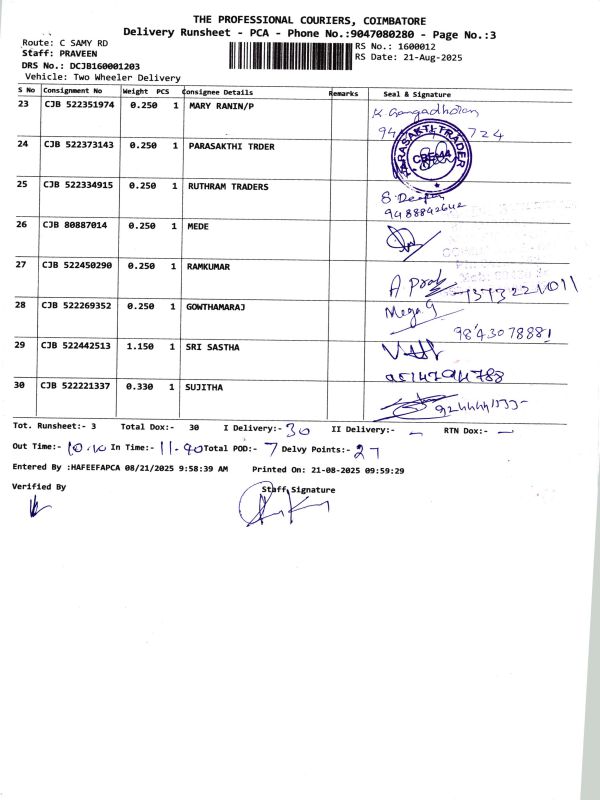 THE PROFESSIONAL COURIERS, COIMBATORE
Delivery Runsheet - PCA - Phone No.:9047080280 - Page No.:3
Route: C SAMY RD RS No.: 1600012
Staff: PRAVEEN RS Date: 21-Aug-2025
DRS No.: DCJB160001203
Vehicle: Two Wheeler Delivery
S No Consignment No Weight PCS Consignee Details Remarks Seal & Signature
23 CJB 522351974 0.250 1 MARY RANIN/P K. Gangadharan
24 CJB 522373143 0.250 1 PARASAKTHI TRDER PARASAKTI TRADER CBE-44
25 CJB 522334915 0.250 1 RUTHRAM TRADERS
9488842642
26 CJB 80887014 0.250 1 MEDE
27 CJB 522450290 0.250 1 RAMKUMAR
28 CJB 522269352 0.250 1 GOWTHAMARAJ Mega. G
9843078881
29 CJB 522442513 1.150 1 SRI SASTHA
9514794788
30 CJB 522221337 0.330 1 SUJITHA
Tot. Runsheet:- 3 Total Dox:- 30 I Delivery:- 30 II Delivery:- - RTN Dox:- -
Out Time:- 10.10 In Time:- 11.40 Total POD:- 7 Delvy Points:- 27
Entered By :HAFEEFAPCA 08/21/2025 9:58:39 AM Printed On: 21-08-2025 09:59:29
Verified By Staff Signature